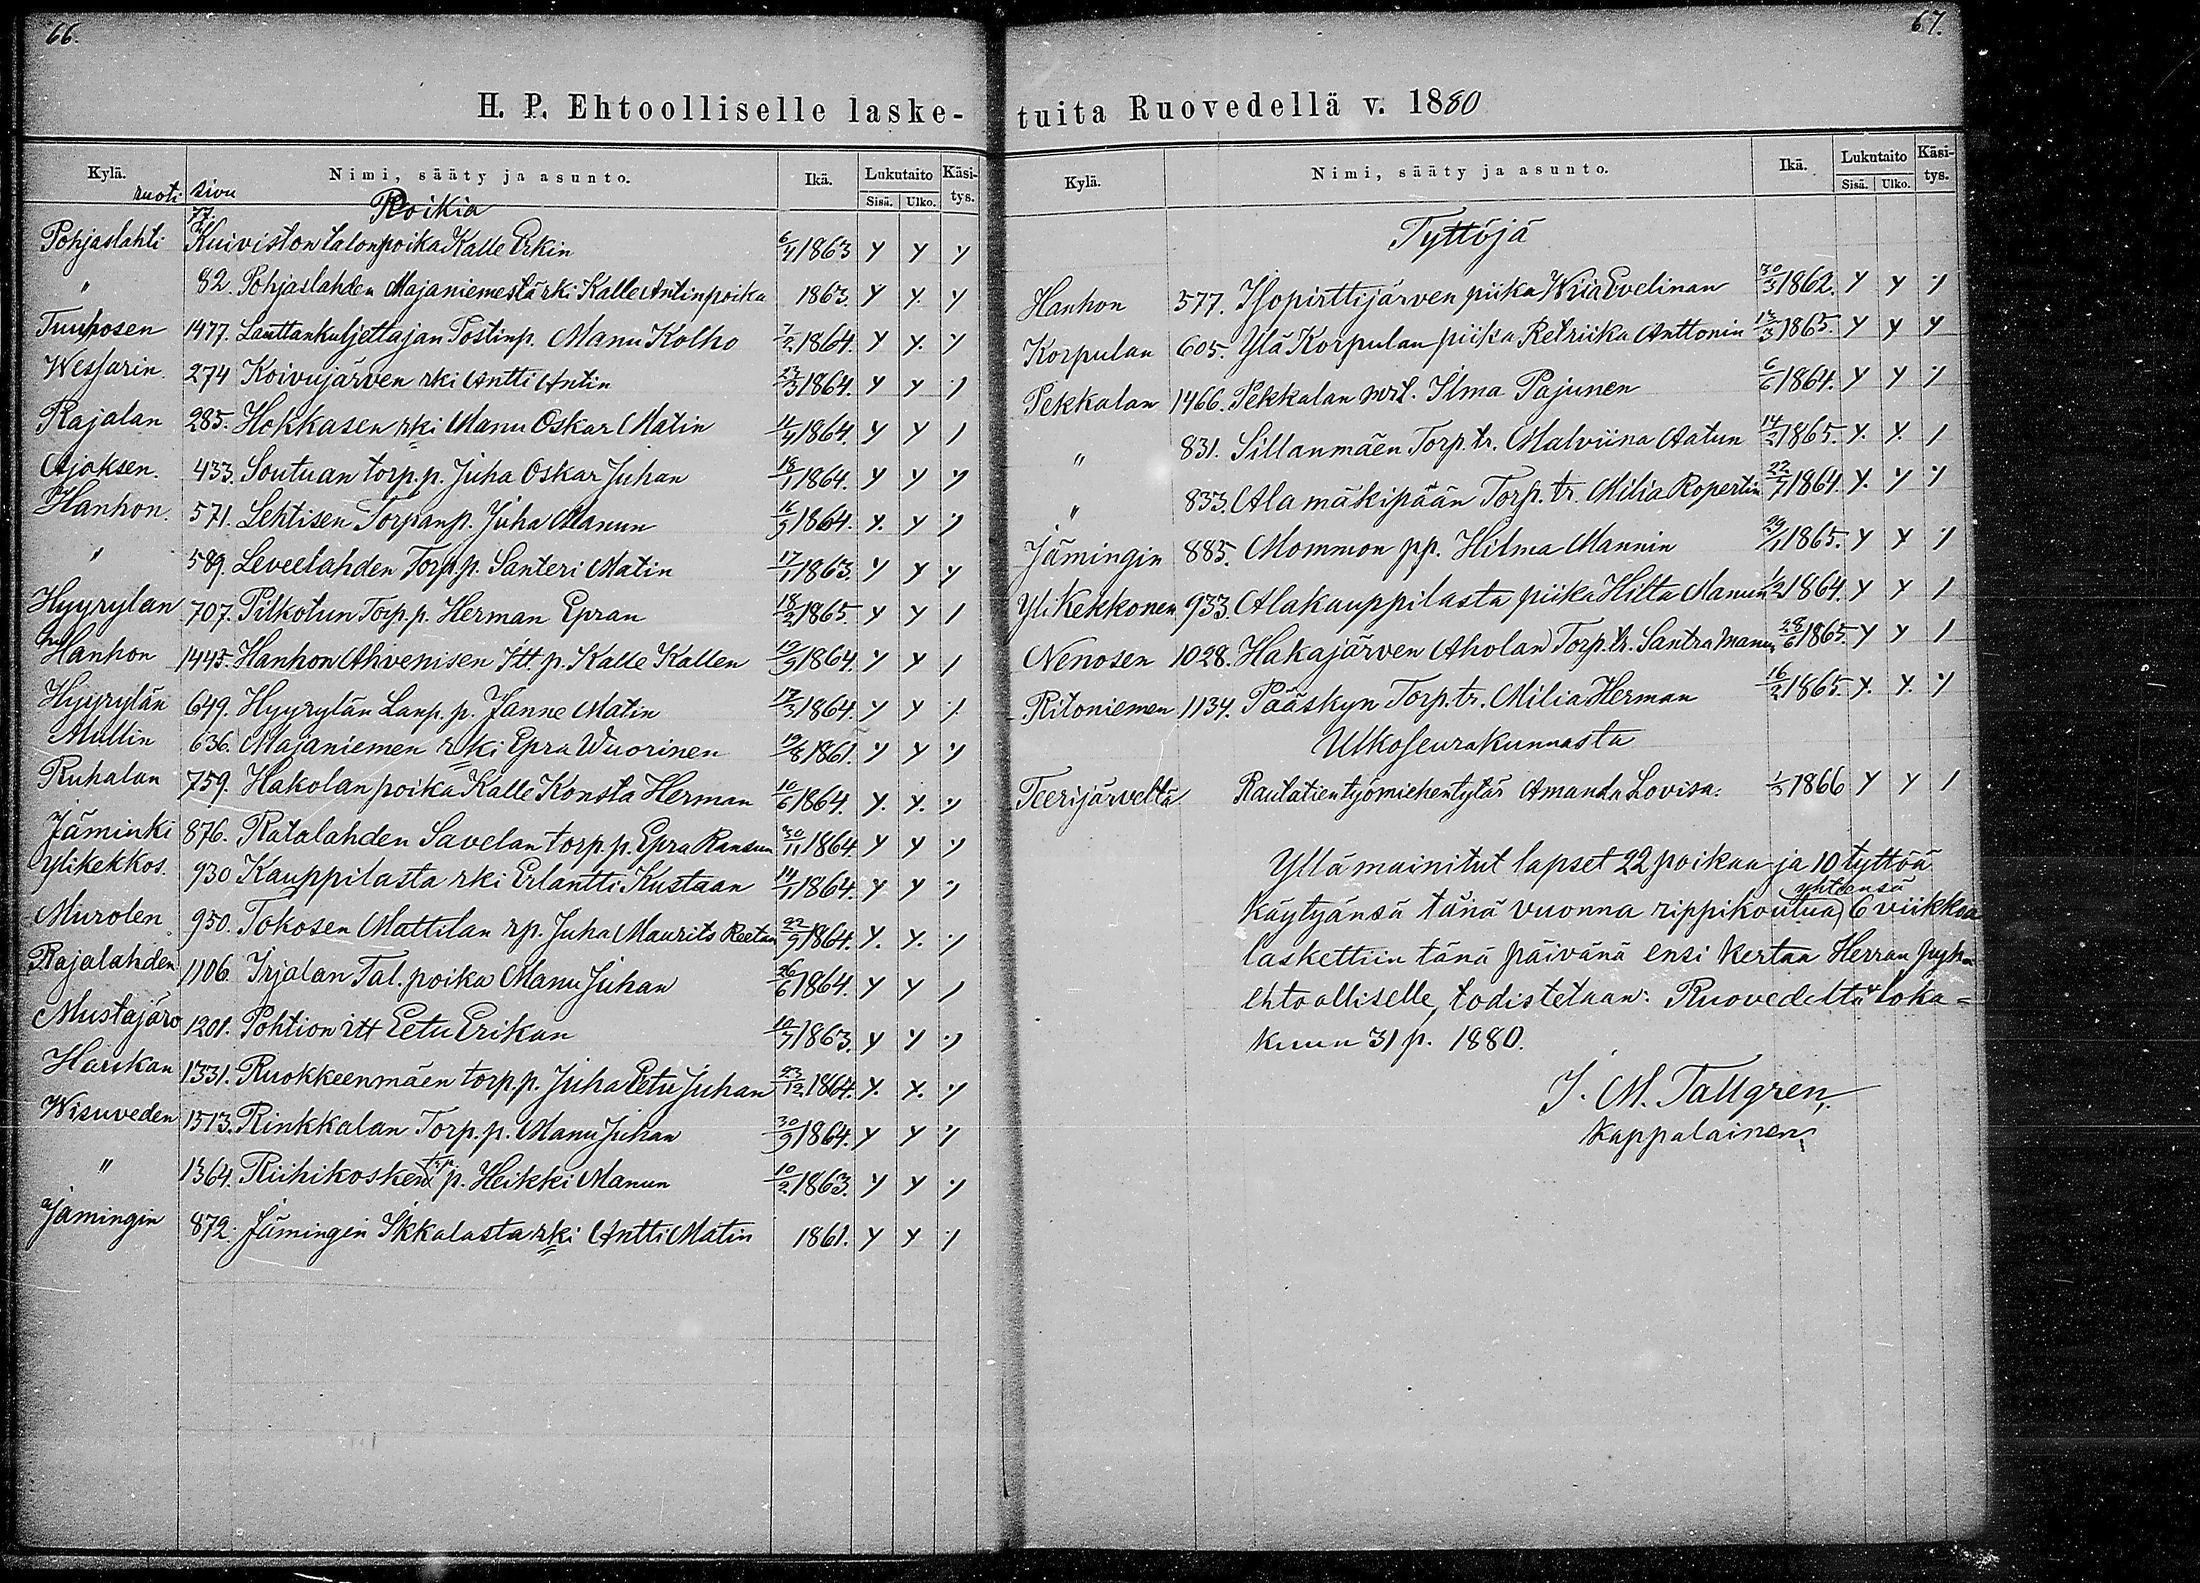 66.
H. P. Ehtoolliselle laske-
Kylä. ruoti sivu Nimi, sääty ja asunto. Ikä. Lukutaito Sisä. Ulko. Käsi-tys.
Poikia
Pohjaslahti 77. Kuiviston talonpoika Kalle Erkin 6/4 1863 y y y
" 82. Pohjaslahden Majaniemestä rki Kalle Antinpoika 1863. y y. y
Tuuhosen 1477. Lauttankuljettajan Postinp. Manu Kolho 7/2 1864. y y. y
Wessarin. 274 Koivujärven rki Antti Antin 23/3 1864. y y y
Rajalan 285. Hokkasen rki Manu Oskar Matin 11/4 1864. y y /
Ajoksen. 433. Soutuan torp.p. Juha Oskar Juhan 18/1 1864. y y y
Hanhon. 571. Lehtisen Torpanp. Juha Manun 16/9 1864. y. y y
" 589. Leveelahden Torp.p. Santeri Matin 17/1 1863. y y y
Hyyrylan 707. Pilkotun Torp.p. Herman Epran 18/2 1865 y y /
Hanhon 1445. Hanhon Ahvenisen Itt.p. Kalle Kallen 10/9 1864. y y /
Hyyrylän 649. Hyyrylän Lanp.p. Janne Matin 17/3 1864. y y y
Mullin 636. Majaniemen rki Epra Wuorinen 19/8 1861. y y y
Ruhalan 759. Hakolan poika Kalle Konsta Herman 10/6 1864. y. y. y
Jäminki 876. Ratalahden Savelan torp.p. Epra Ransun 30/11 1864 y y y
Ylikekkos. 930 Kauppilasta rki Erlantti Kustaan 14/1 1864. y y y
Murolen 950. Tokosen Mattilan rp. Juha Maurits Reetan 22/9 1864. y. y. y
Rajalahden 1106. Irjalan Tal. poika Manu Juhan 26/6 1864. y y /
Mustajärv 1201. Pohtion itt Eetu Erikan 1863. y y y
Hauskan 1331. Ruokkeenmäen torp.p. Juha Eetu Juhan 23/12 1864. y. y. y
Wisuveden 1313. Rinkkalan Torp.p. Manu Juhan 30/9 1864. y y y
" 1364. Riihikosken p. Heikki Manun 10/2 1863. y y y
Jämingin 872. Jämingin Ikkalasta rki Antti Matin 1861. y y y
67.
tuita Ruovedellä v. 1880
Kylä. Nimi, sääty ja asunto. Ikä. Lukutaito Sisä. Ulko. Käsi-tys.
Tyttöjä
Hanhon 577. Isopirttijärven piika Evelinan 30/3 1862. y y y
Korpulan 605. Ylä Korpulan piika Retriika Anttonin 1865. y y y
Pekkalan 1466. Pekkalan Ilma Pajunen 6/6 1864. y y y
" 831. Sillanmäen Torp.tr. Malviina Aatun 14/2 1865. y. y. /
" 833. Ala mäkipään Torp.tr. Milia Ropertin 22/7 1864. y. y y
Jämingin 885. Mommon pp. Hilma Mannin 29/1 1865. y y y
Yli Kekkonen 933. Alakauppilasta piika Hilta Manun 1/2 1864. y y /
Nenosen 1028. Hakajärven Aholan Torp.tr. Santra Manun 28/6 1865 y y /
Ritoniemen 1134. Pääskyn Torp.tr. Milia Herman 16/2 1865 y. y. y
Ulkoseurakunnasta
Teerijärveltä Rautatientyömiehentytär Amanda Lovisa. 1/5 1866 y y /
Yllämainitut lapset 22 poikaa ja 10 tyttöä
käytyänsä tänä vuonna rippikoulua yhteensä 6 viikkoa
laskettiin tänä päivänä ensi kertaa Herran pyhä
ehtoolliselle, todistetaan: Ruovedeltä loka=
kuun 31 p. 1880.
J. M. Tallgren,
kappalainen.